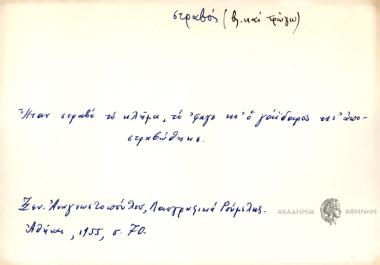 στραβός (βλ. καὶ τρώγω)
Ἦταν στραβό τό κλῆμα, τό 'φαγε κι' ὁ γάϊδαρος κι' ἀπο-
στραβώθηκε.
Ξεν. Ἀναγνωστοπούλου, Λαογραφικά Ρούμελης.
Ἀθῆναι, 1955, σ. 70.
ΑΚΑΔΗΜΙΑ ΑΘΗΝΩΝ